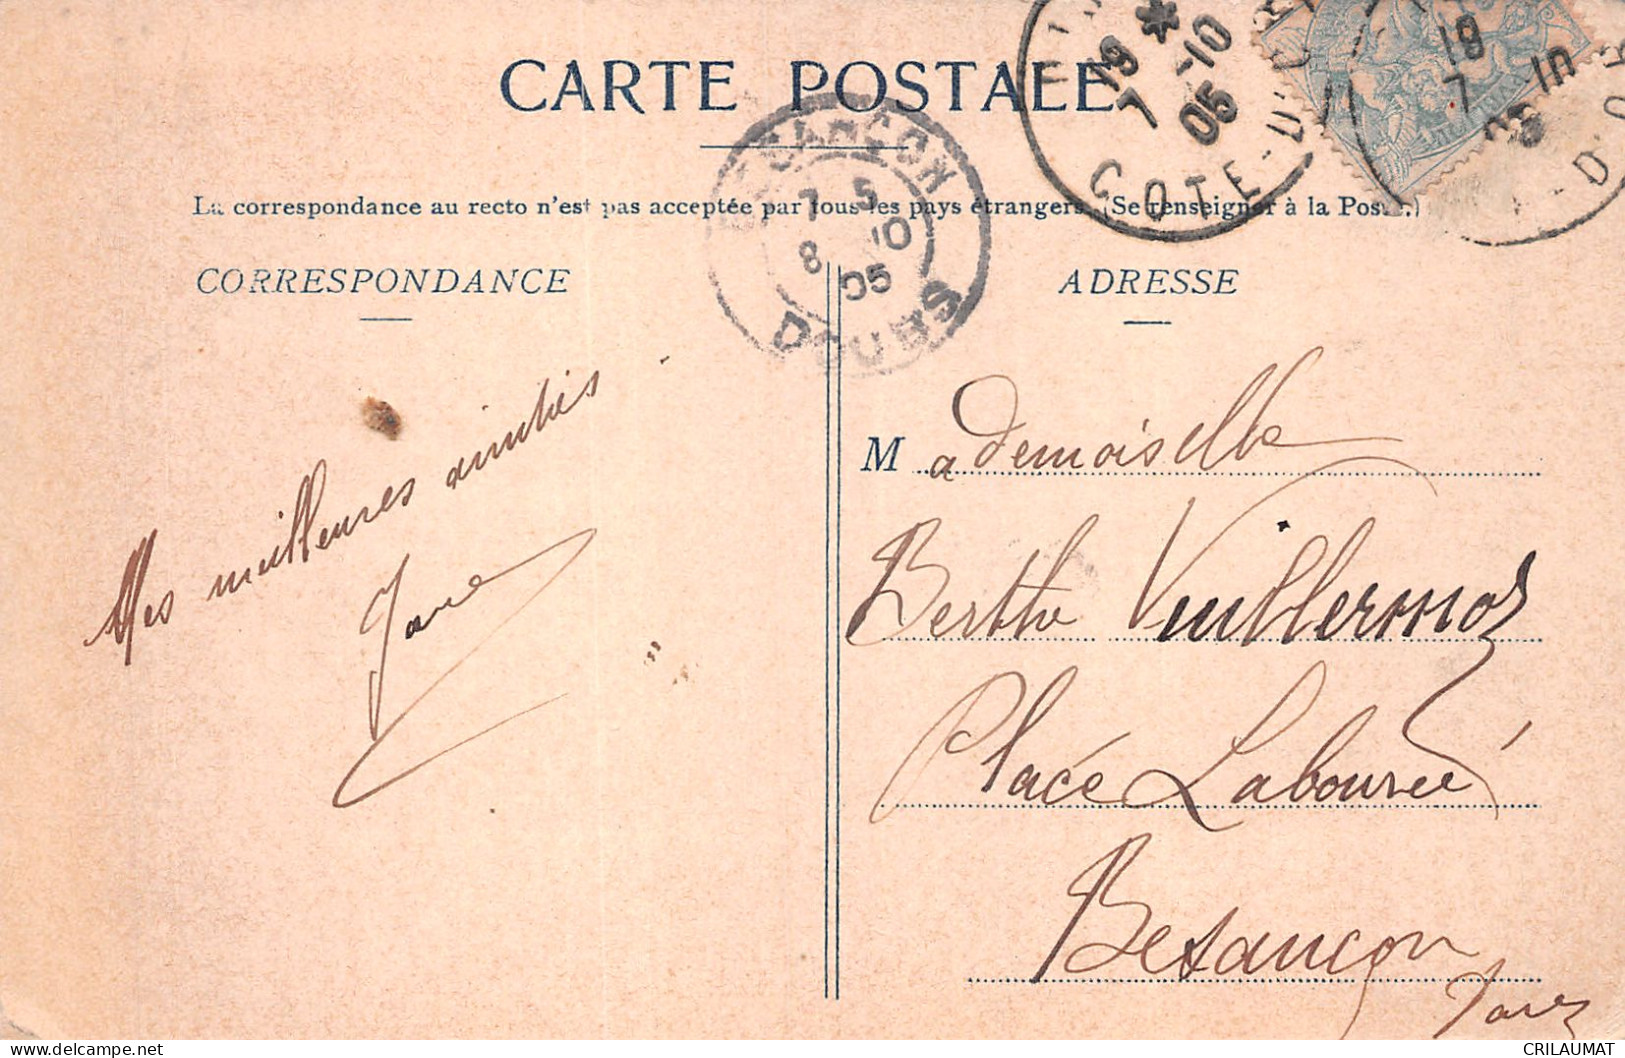 CARTE POSTALE
19 *
7 -10
05
COTE-D'OR
19
7 10
05
D'OR
BESANCON
7 5
8 10
05
DOUBS
La correspondance au recto n'est pas acceptée par tous les pays étrangers. (Se renseigner à la Poste.)
CORRESPONDANCE
ADRESSE
Mes meilleures amitiés
Mademoiselle
Berthe Vuillermoz
Place Labourée
Besançon
CRILAUMAT